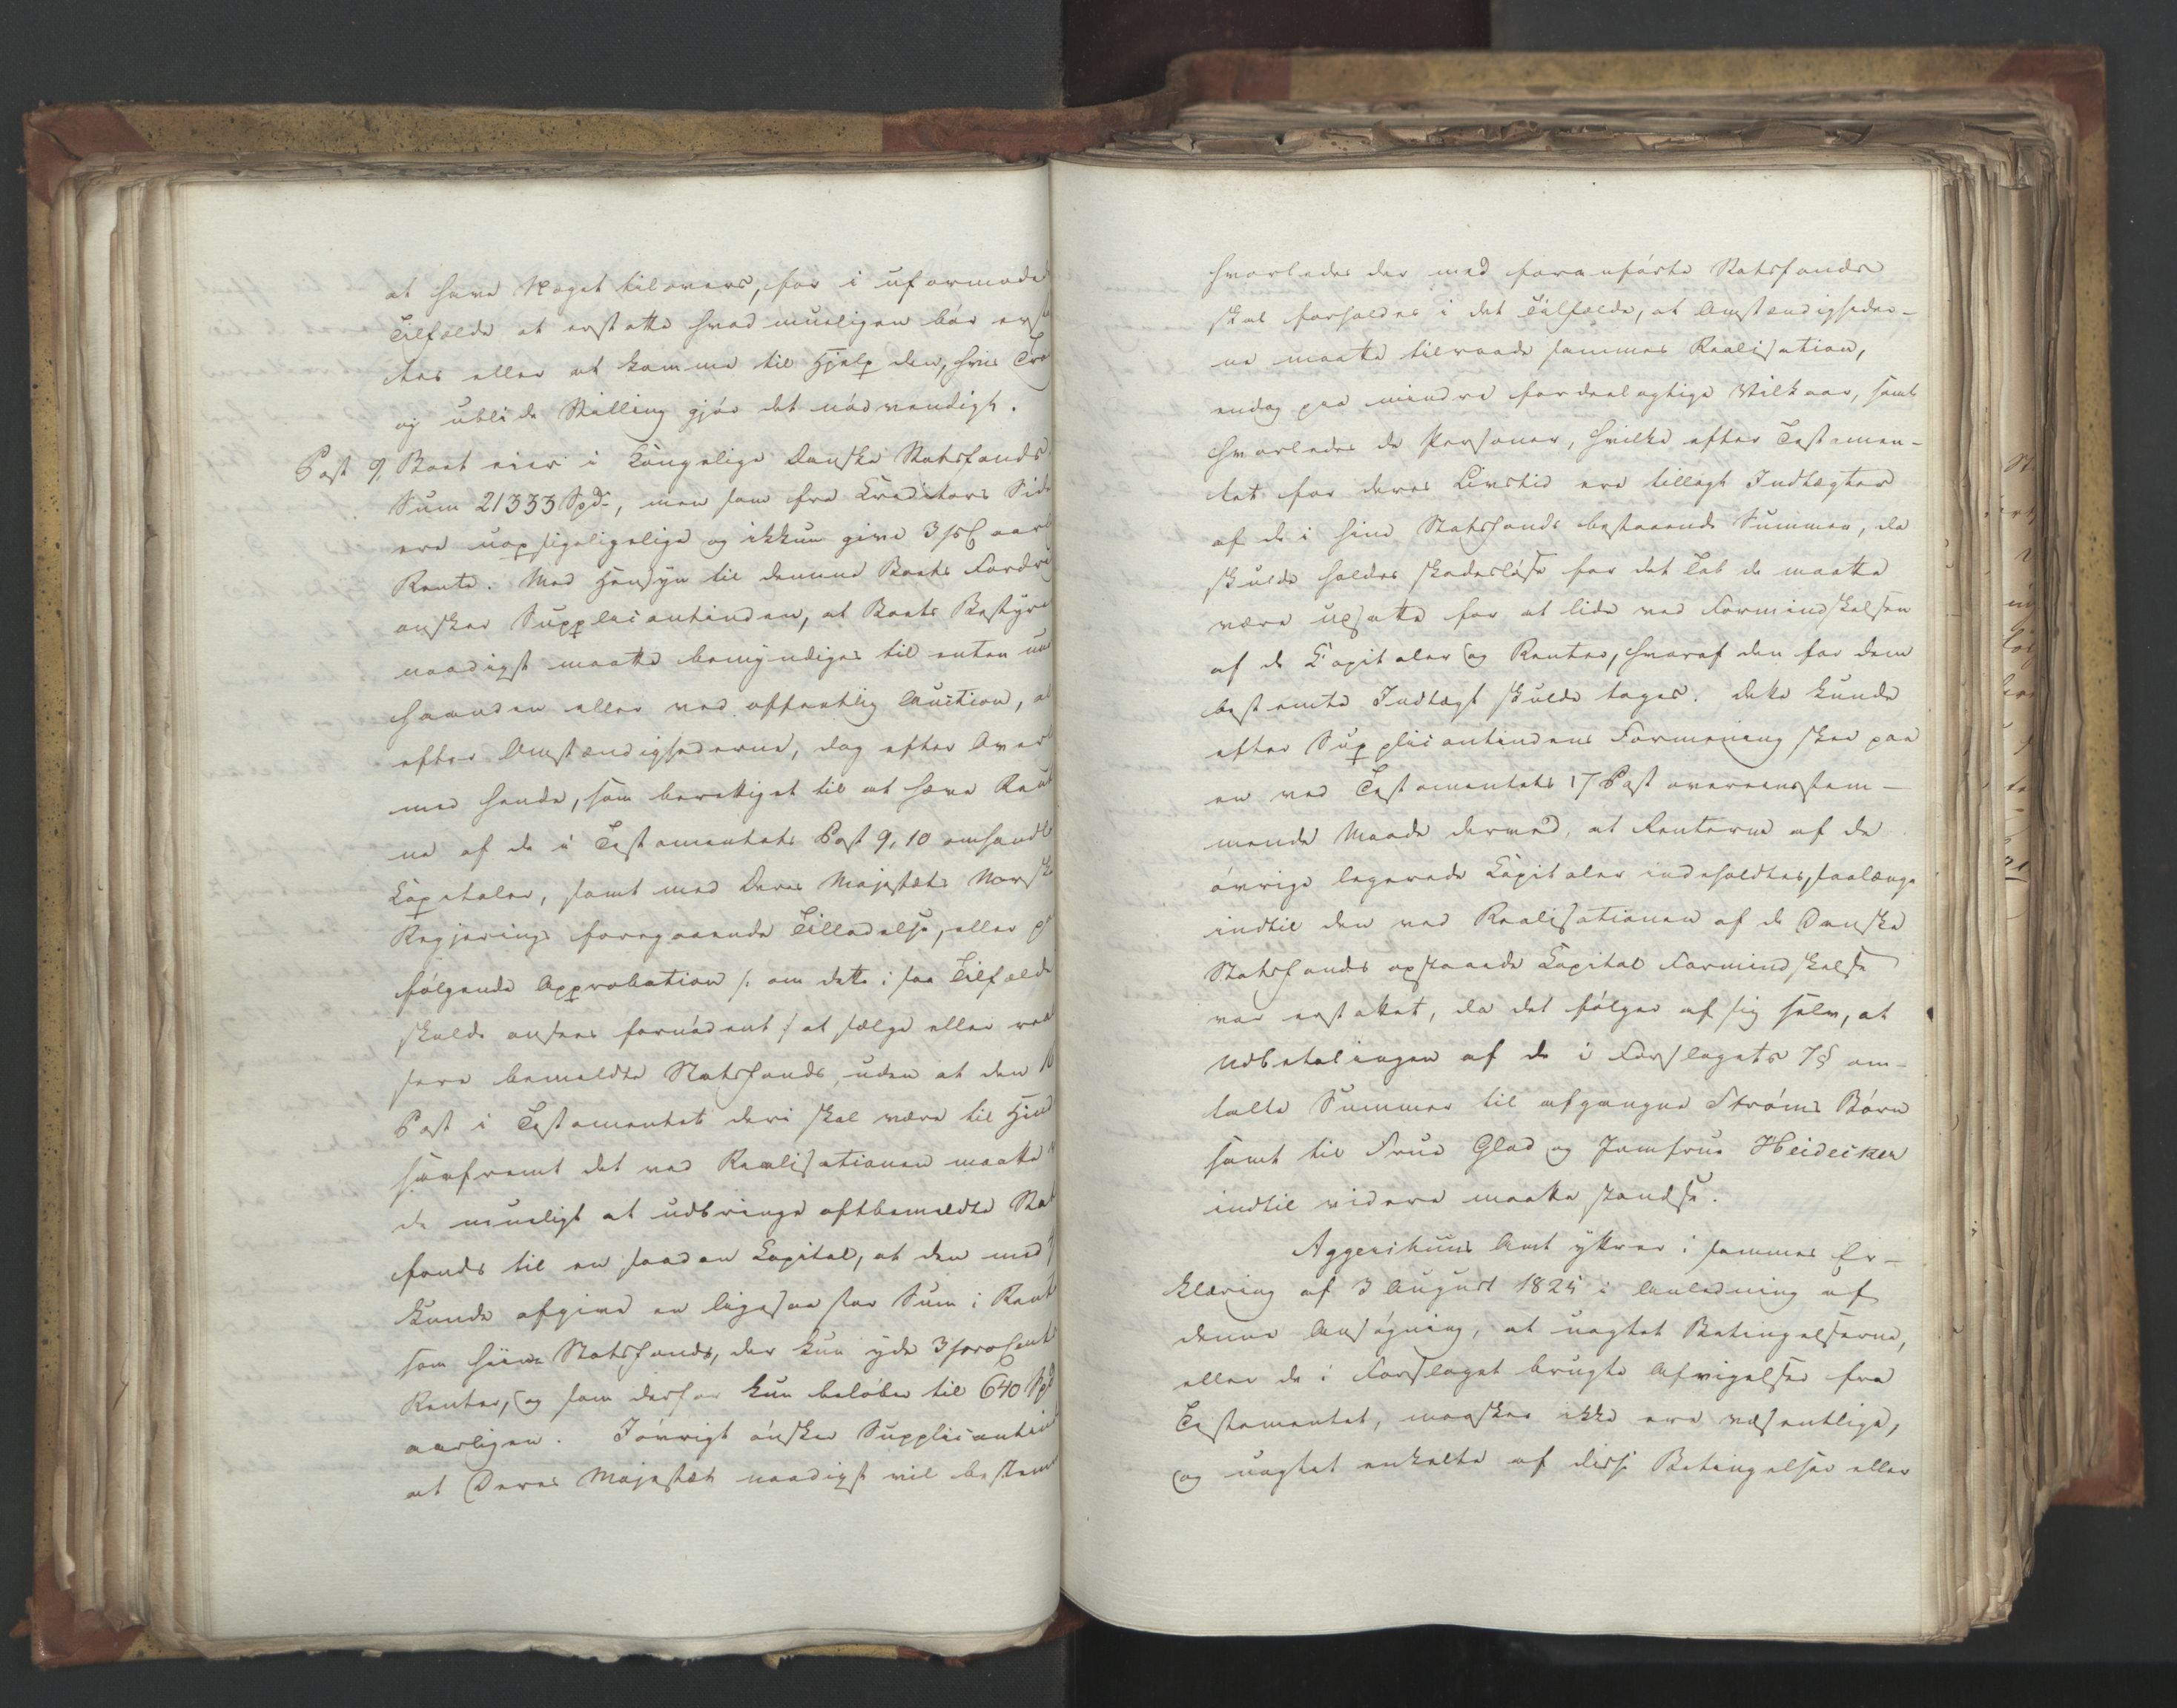 at have Noget tilovers, for i uformode
Tilfælde at erstatte hvad mueligen bör erst
tes eller at komme til Hjelp den, hvis Tra
og ublide Stilling gjör det nödvendigt.
Post 9, Boet eier i Kongelige Danske Statsfonds
Sum 21333 Spd., men som fra Creditors Side
ere uopsigeligelige og ikkun give 3 pC aarl
Rente. Med Hensyn til denne Boets Fordri
ønsker Supplicantinden, at Boets Bestyre
naadigst maatte bemyndiges til enten un
haanden eller ved offentlig Auction, al
efter Omstændighederne, dog efter Over
med hende, som berettiget til at hæve Rent
ne af de i Testamentets Post 9, 10 omhandl
Capitaler, samt med Deres Majestæts Norsk
Regjerings foregaaende Tilladelse, eller p
følgende Approbation /: om dette i saa Tilfælde
skulde ansees fornödent :/ at sælge eller rea
sere bemeldte Statsfonds, uden at den 10
Post i Testamentet deri skal være til Hind
saafremt det ved Realisationen maatte
de mueligt at udbringe oftbemeldte Stat
fonds til en saadan Capital, at den med 4
kunde afgive en ligesaa stor Sum i Rent
som hiine Statsfonds, der kun yde 3 proCent
Renter, og som derfor kun beløber til 640 Spd
aarligen. Iövrigt önsker Supplicantind
at Deres Majestæt naadigst vil bestem
hvorledes der med foranførte Statsfonds
skal forholdes i det Tilfælde, at Omstændigheder-
ne maatte tilraade sammes Realisation,
endog paa mindre fordeelagtige Vilkaar, samt
hvorledes de Personer, hvilke efter Testamen-
tet for deres Livstid ere tillagt Indtægter
af de i hine Statsfonds bestaaende Summer, da
skulde holdes skadesløse for det Tab de maatte
være udsatte for at lide ved Formindskelsen
af de Capitaler og Renter, hvoraf den for dem
bestemte Indtægt skulde tages. Dette kunde
efter Supplicantindens Formening skee paa
en ved Testamentets 17 Post overeensstem-
mende Maade derved, at Renterne af de
övrige legerede Capitaler indeholdtes, saalænge
indtil den ved Realisationen af de Danske
Statsfonds opstaaede Capital Formindskelse
var erstattet, da det følger af sig selv, at
Udbetalingen af de i Forslagets 7 § om-
talte Summer til afgangne Ströms Börn
samt til Frue Glad og Jomfrue Heidecken
indtil videre maatte standse.
Aggershuus Amt yttrer i sammes Er-
klæring af 3 August 1825 i Anledning af
denne Ansögning, at uagtet Betingelserne,
eller de i Forslaget brugte Afvigelser fra
Testamentet, maaskee ikke ere væsentlige,
og uagtet enkelte af disse Betingelser eller